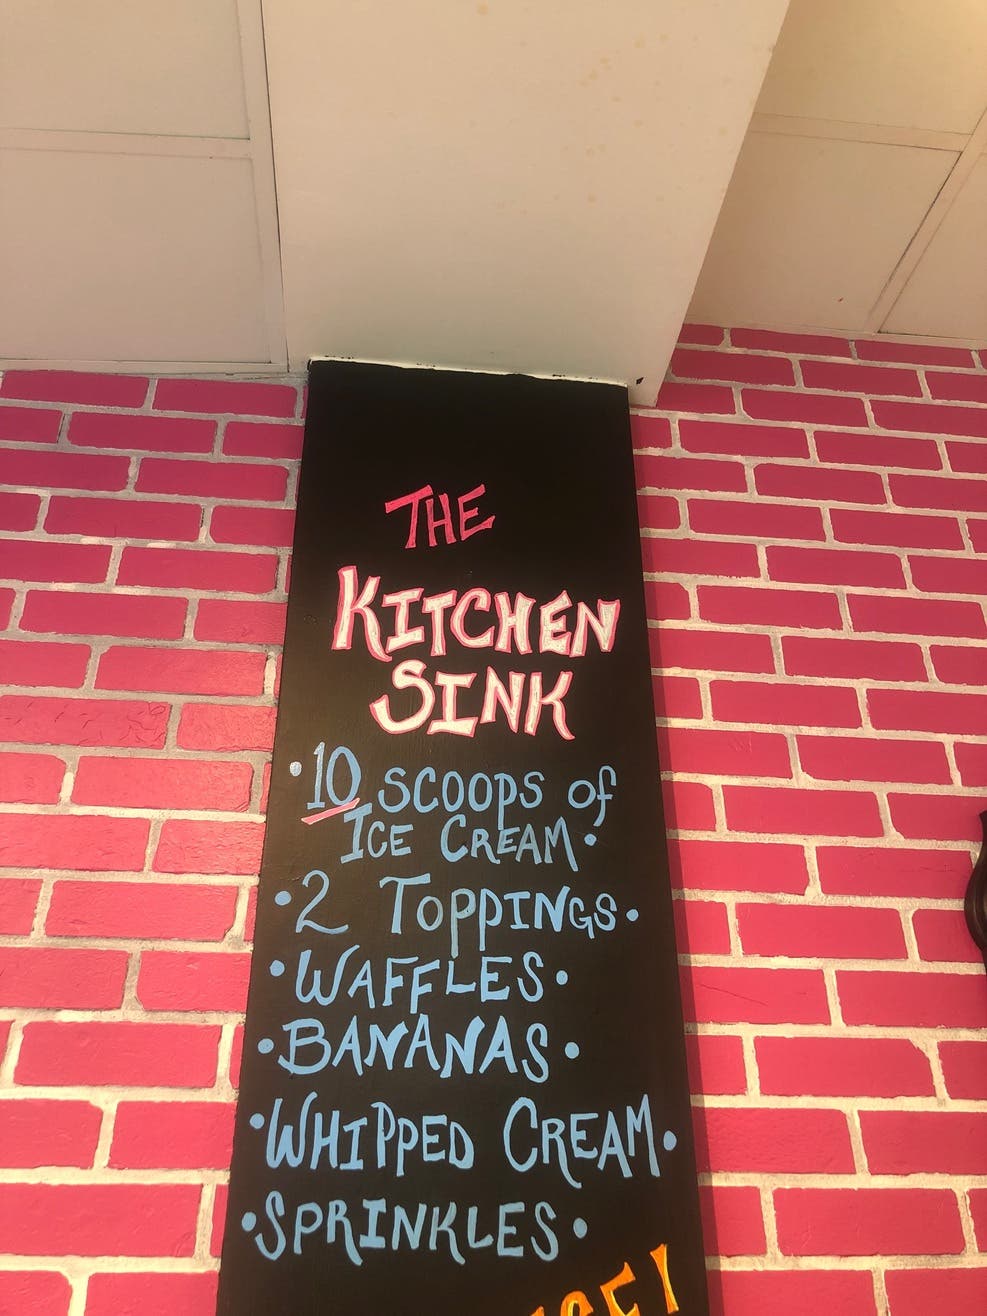 THE
KITCHEN
SINK
• 10 SCOOPS of
ICE CREAM •
• 2 TOPPINGS •
• WAFFLES •
• BANANAS •
• WHIPPED CREAM •
• SPRINKLES •